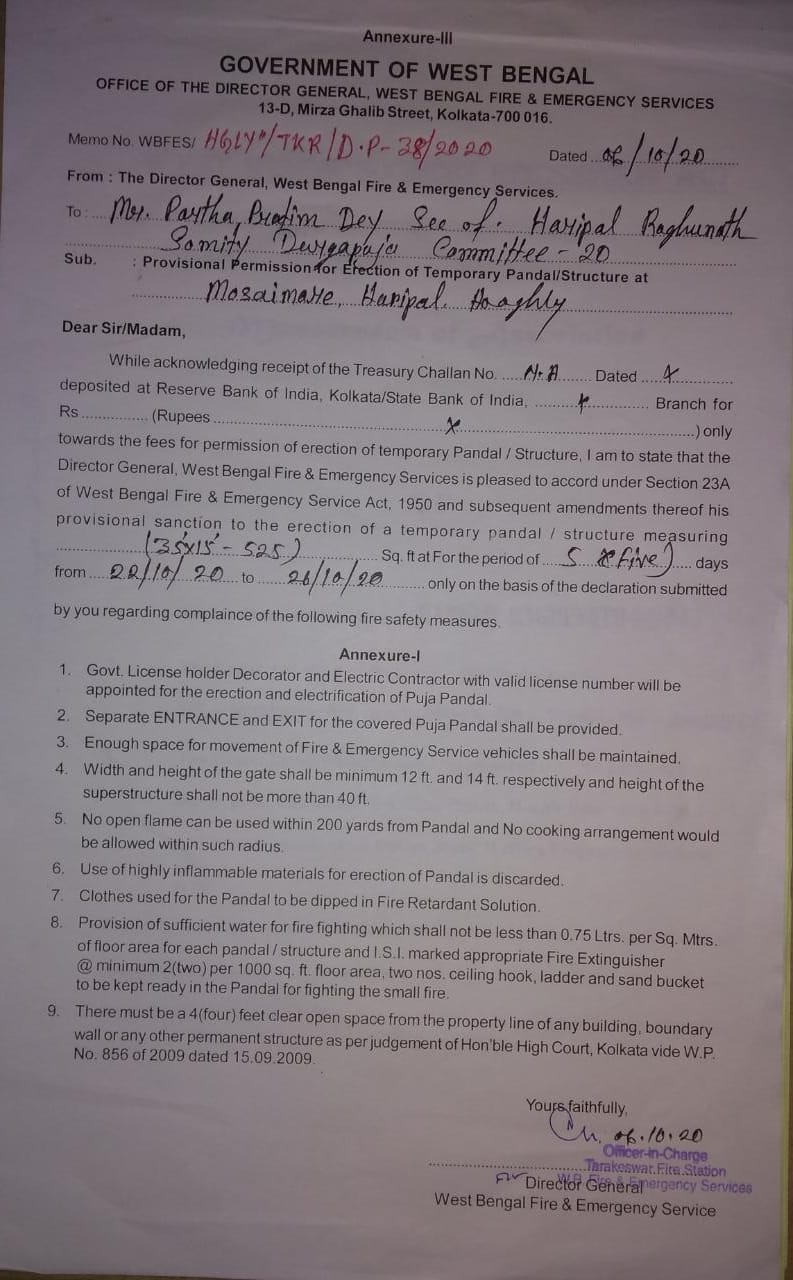 Annexure-III
GOVERNMENT OF WEST BENGAL
OFFICE OF THE DIRECTOR GENERAL, WEST BENGAL FIRE & EMERGENCY SERVICES
13-D, Mirza Ghalib Street, Kolkata-700 016.
Memo No. WBFES/ HGLY/TKR/D.P-38/2020 Dated 06/10/20
From : The Director General, West Bengal Fire & Emergency Services.
To : Mr. Partha Pratim Dey Sec of. Haripal Raghunath
Somity Durgapuja Committee - 20
Sub. : Provisional Permission for Erection of Temporary Pandal/Structure at
Haripal. Hooghly
Dear Sir/Madam,
While acknowledging receipt of the Treasury Challan No. N.A Dated x
deposited at Reserve Bank of India, Kolkata/State Bank of India, x Branch for
Rs (Rupees x ) only
towards the fees for permission of erection of temporary Pandal / Structure, I am to state that the
Director General, West Bengal Fire & Emergency Services is pleased to accord under Section 23A
of West Bengal Fire & Emergency Service Act, 1950 and subsequent amendments thereof his
provisional sanction to the erection of a temporary pandal / structure measuring
(35'x15' - 525) Sq. ft at For the period of 5 (five) days
from 22/10/20 to 26/10/20 only on the basis of the declaration submitted
by you regarding complaince of the following fire safety measures.
Annexure-I
1. Govt. License holder Decorator and Electric Contractor with valid license number will be
appointed for the erection and electrification of Puja Pandal.
2. Separate ENTRANCE and EXIT for the covered Puja Pandal shall be provided.
3. Enough space for movement of Fire & Emergency Service vehicles shall be maintained.
4. Width and height of the gate shall be minimum 12 ft. and 14 ft. respectively and height of the
superstructure shall not be more than 40 ft.
5. No open flame can be used within 200 yards from Pandal and No cooking arrangement would
be allowed within such radius.
6. Use of highly inflammable materials for erection of Pandal is discarded.
7. Clothes used for the Pandal to be dipped in Fire Retardant Solution.
8. Provision of sufficient water for fire fighting which shall not be less than 0.75 Ltrs. per Sq. Mtrs.
of floor area for each pandal / structure and I.S.I. marked appropriate Fire Extinguisher
@ minimum 2(two) per 1000 sq. ft. floor area, two nos. ceiling hook, ladder and sand bucket
to be kept ready in the Pandal for fighting the small fire.
9. There must be a 4(four) feet clear open space from the property line of any building, boundary
wall or any other permanent structure as per judgement of Hon'ble High Court, Kolkata vide W.P.
No. 856 of 2009 dated 15.09.2009.
Yours faithfully,
06.10.20
Officer-in-Charge
Tarakeswar Fire Station
W.B. Fire & Emergency Services
For Director General
West Bengal Fire & Emergency Service